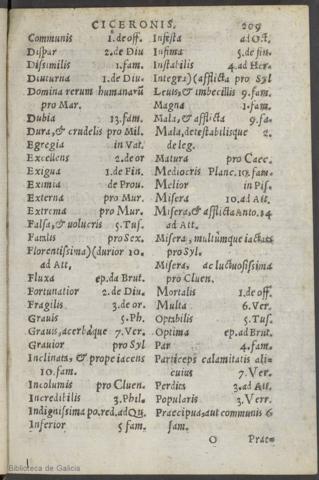 CICERONIS. 209
Communis 1. de off.
Dispar 2. de Diu
Dissimilis 1. fam.
Diuturna 1. de Diu.
Domina rerum humanarũ
pro Mar.
Dubia 13. fam.
Dura, & crudelis pro Mil.
Egregia in Vat.
Excellens 2. de or
Exigua 1. de Fin.
Eximia de Prou.
Externa pro Mur.
Extrema pro Mur.
Falsa, & uolucris 5. Tus.
Familis pro Sex.
Florentissima)(durior 10.
ad Att.
Fluxa ep. da Brut.
Fortunatior 2. de Diu.
Fragilis 3. de or.
Grauis 5. Ph.
Grauis, acerbáque 7. Ver.
Grauior pro Syl
Inclinata, & prope iacens
10. fam.
Incolumis pro Cluen.
Incredibilis 3. Phil.
Indignissima po. red. ad Qu.
Inferior 5 fam.
Infesta ad Oct.
Infima 5. de fin.
Instabilis 4. ad Her.
Integra)(afflicta pro Syl
Leuis, & imbecillis 9. fam.
Magna 1. fam.
Mala, & afflicta 9. fa.
Mala, detestabilisque 2.
de leg.
Matura pro Caec.
Mediocris Planc. 10. fam.
Melior in Pis.
Misera 10. ad Att.
Misera, & afflicta Anto. 14
ad Att.
Misera, multúmque iactata
pro Syl.
Misera, ac luctuosissima
pro Cluen.
Mortalis 1. de off.
Multa 6. Ver.
Optabilis 5. Tus.
Optima ep. ad Brut.
Par 4. fam.
Particeps calamitatis ali=
cuius 7. Ver.
Perdita 3. ad Att.
Popularis 3. Verr.
Praecipua, aut communis 6
fam.
O Prae=
Biblioteca de Galicia